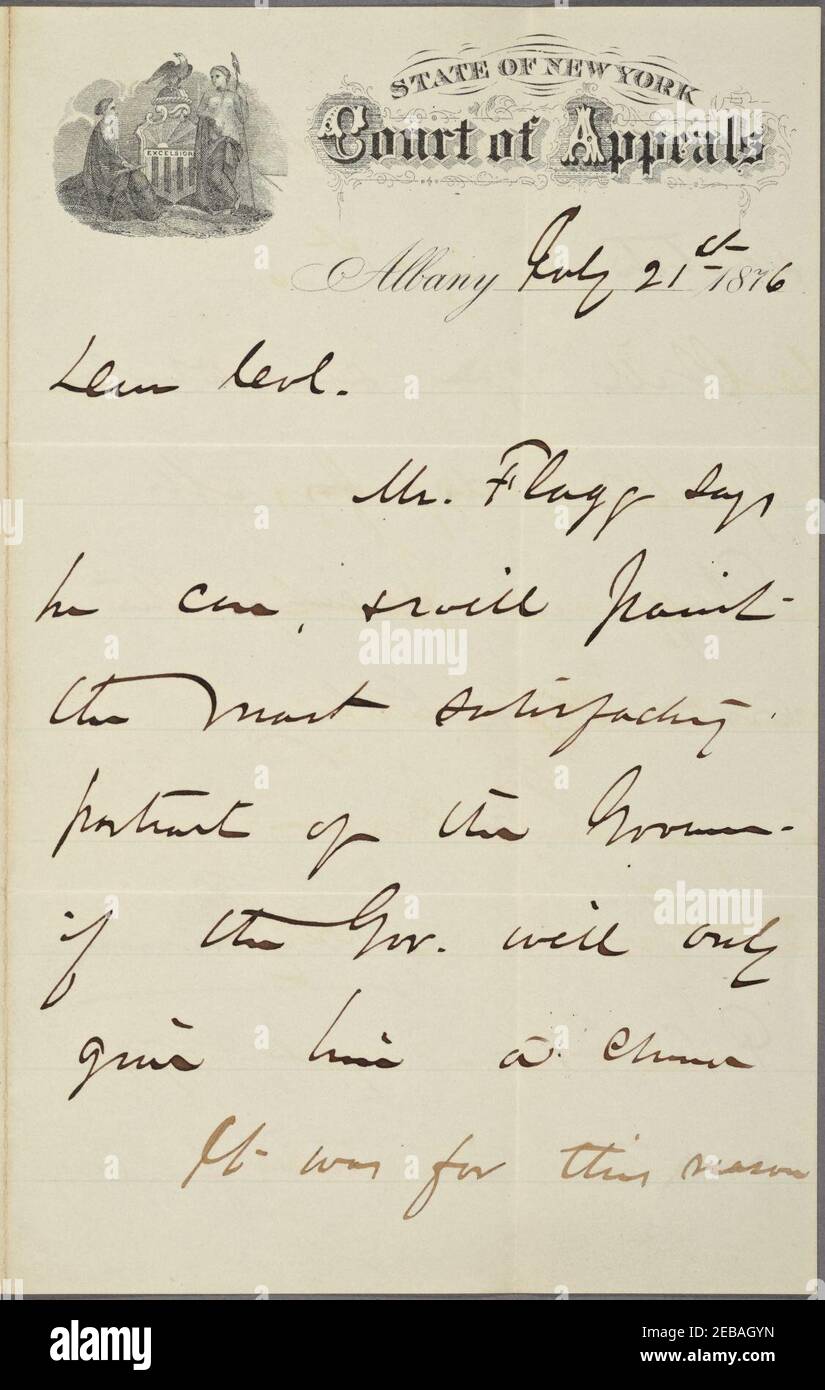 EXCELSIOR
STATE OF NEW YORK
Court of Appeals
Albany July 21st 1876
Dear Col.
Mr. Flagg says
he can, & will paint
the most satisfactory
portrait of the Governor
if the Gov. will only
give him a chance
It was for this reason
alamy
alamy
Image ID: 2EBAGYN
www.alamy.com